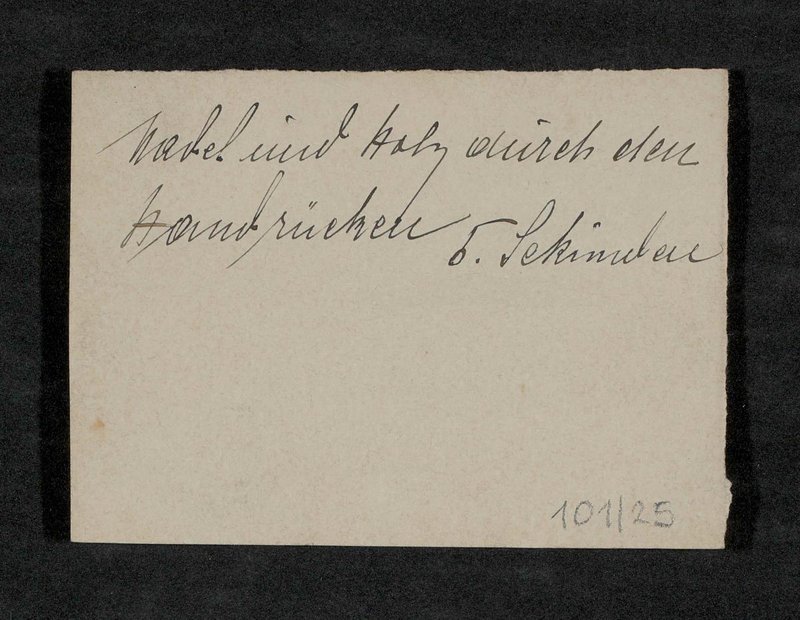 Nadel und Holz durch den
Handrücken 5. Sekunden
101/25